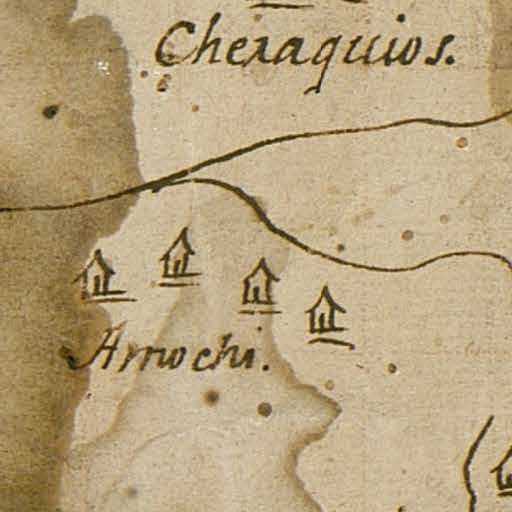 Cheraquios.
Arrwchi.